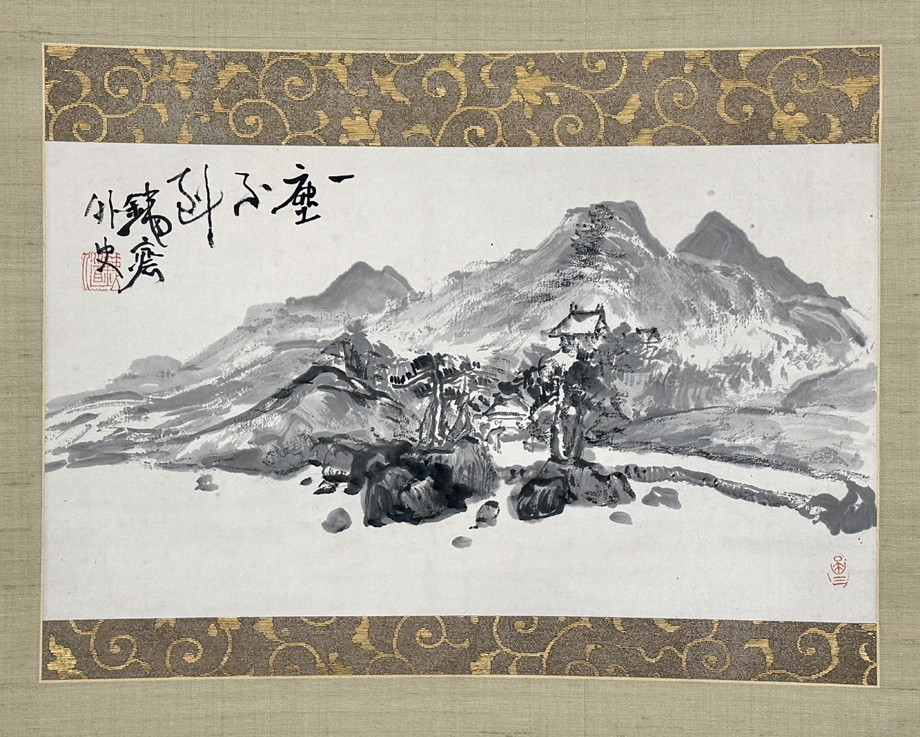 一塵不到
鐵齋
外史